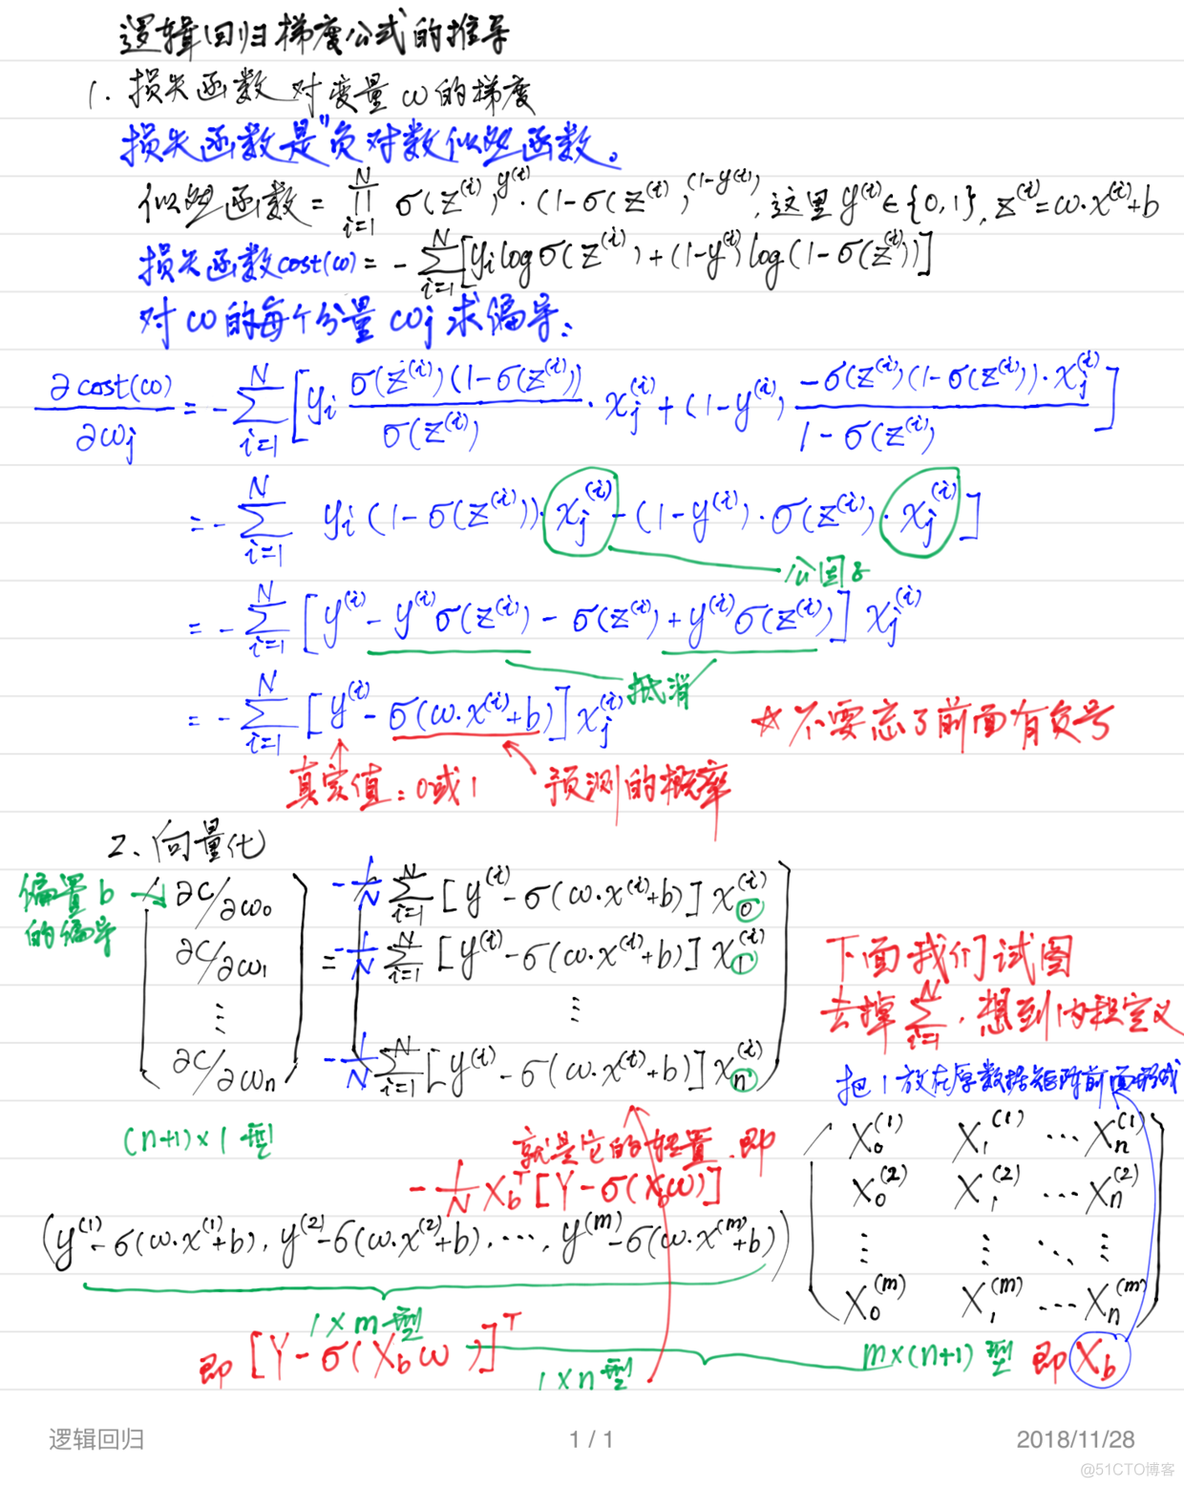 逻辑回归梯度公式的推导
1. 损失函数 对变量 ω 的梯度
损失函数是"负对数似然函数。
似然函数 = ∏_{i=1}^{N} σ(z^{(i)})^{y^{(i)}}·(1-σ(z^{(i)})^{(1-y^{(i)})}, 这里 y^{(i)}∈{0,1}, z^{(i)}=ω·x^{(i)}+b
损失函数cost(ω) = -∑_{i=1}^{N}[y_i logσ(z^{(i)})+(1-y^{(i)})log(1-σ(z^{(i)}))]
对 ω 的每个分量 ω_j 求偏导:
∂cost(ω)/∂ω_j = -∑_{i=1}^{N}[y_i σ(z^{(i)})(1-σ(z^{(i)}))/σ(z^{(i)}) · x_j^{(i)} + (1-y^{(i)}) -σ(z^{(i)})(1-σ(z^{(i)}))·x_j^{(i)}/1-σ(z^{(i)})]
= -∑_{i=1}^{N} y_i(1-σ(z^{(i)}))·x_j^{(i)} - (1-y^{(i)})·σ(z^{(i)})·x_j^{(i)}]
公因子
= -∑_{i=1}^{N}[y^{(i)} - y^{(i)}σ(z^{(i)}) - σ(z^{(i)}) + y^{(i)}σ(z^{(i)})] x_j^{(i)}
抵消
= -∑_{i=1}^{N}[y^{(i)} - σ(ω·x^{(i)}+b)] x_j^{(i)}
☆ 不要忘了前面有负号
真实值: 0或1 预测的概率
2、向量化
偏置 b
的偏导
∂C/∂ω_0 -1/N ∑_{i=1}^{N}[y^{(i)}-σ(ω·x^{(i)}+b)] x_0^{(i)}
∂C/∂ω_1 = -1/N ∑_{i=1}^{N}[y^{(i)}-σ(ω·x^{(i)}+b)] x_1^{(i)}
⋮ ⋮
∂C/∂ω_n -1/N ∑_{i=1}^{N}[y^{(i)}-σ(ω·x^{(i)}+b)] x_n^{(i)}
下面我们试图
去掉∑_{i=1}^{N}, 想到内积定义
把 1 放在原数据矩阵前面形成
(n+1)×1 型
就是它的转置, 即
-1/N X_b^T[Y-σ(X_bω)]
(y^{(1)}-σ(ω·x^{(1)}+b), y^{(2)}-σ(ω·x^{(2)}+b), ⋯, y^{(m)}-σ(ω·x^{(m)}+b))
X_0^{(1)} X_1^{(1)} ⋯ X_n^{(1)}
X_0^{(2)} X_1^{(2)} ⋯ X_n^{(2)}
⋮ ⋮ ⋱ ⋮
X_0^{(m)} X_1^{(m)} ⋯ X_n^{(m)}
1×m 型
即 [Y-σ(X_bω)]^T
1×n 型
m×(n+1) 型 即 X_b
逻辑回归 1 / 1 2018/11/28
@51CTO博客